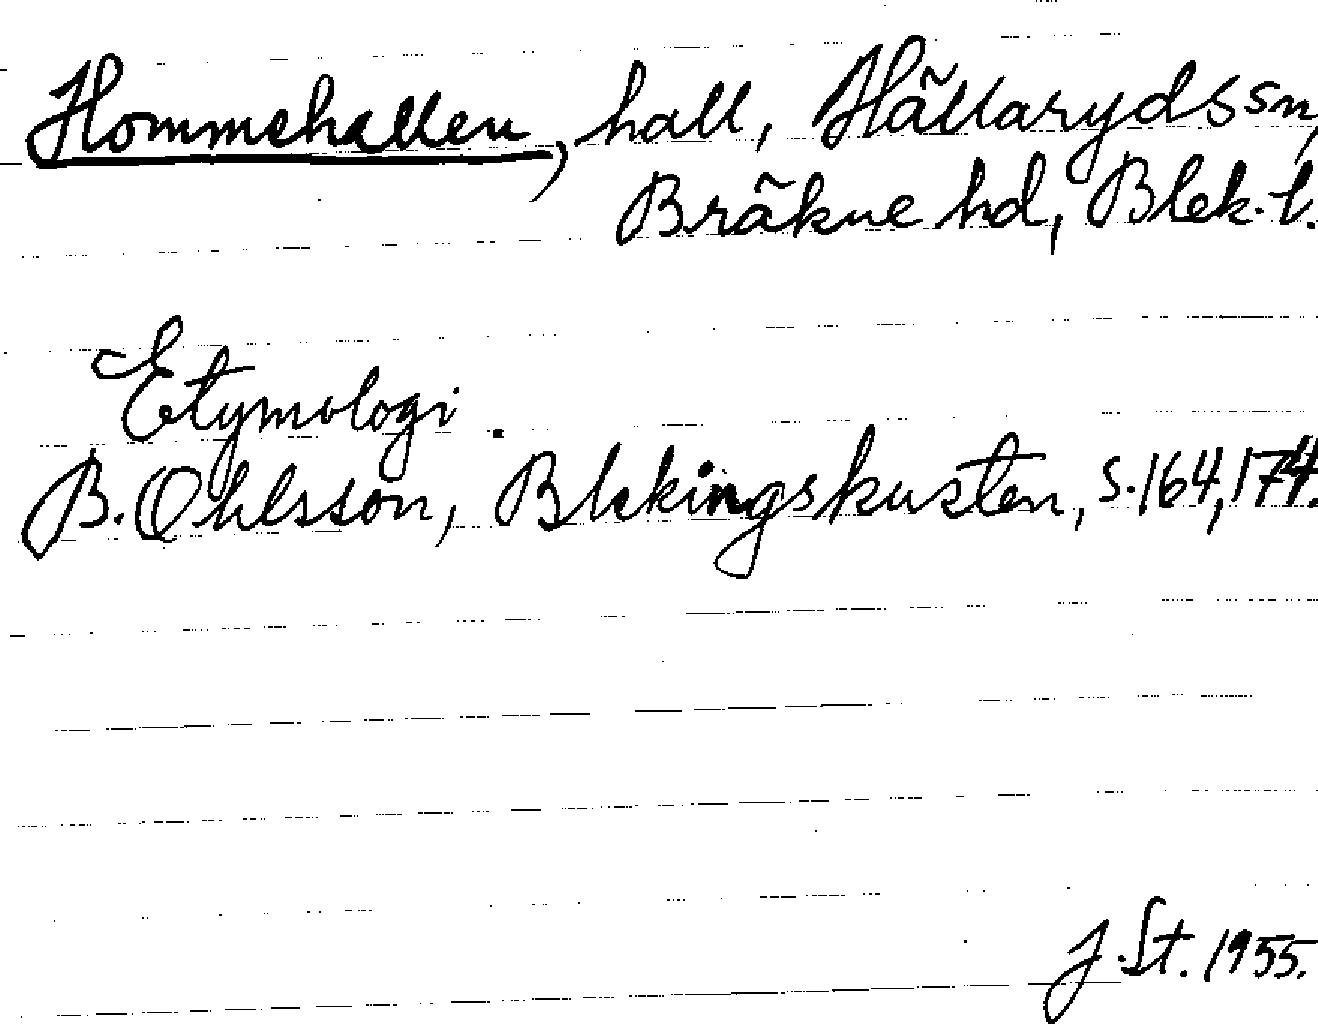 Hommehallen, hall, Hällaryds sn,
Bräkne hd, Blek. l.
Etymologi.
B. Ohlsson, Blekingskusten, s. 164, 174.
J. St. 1955.